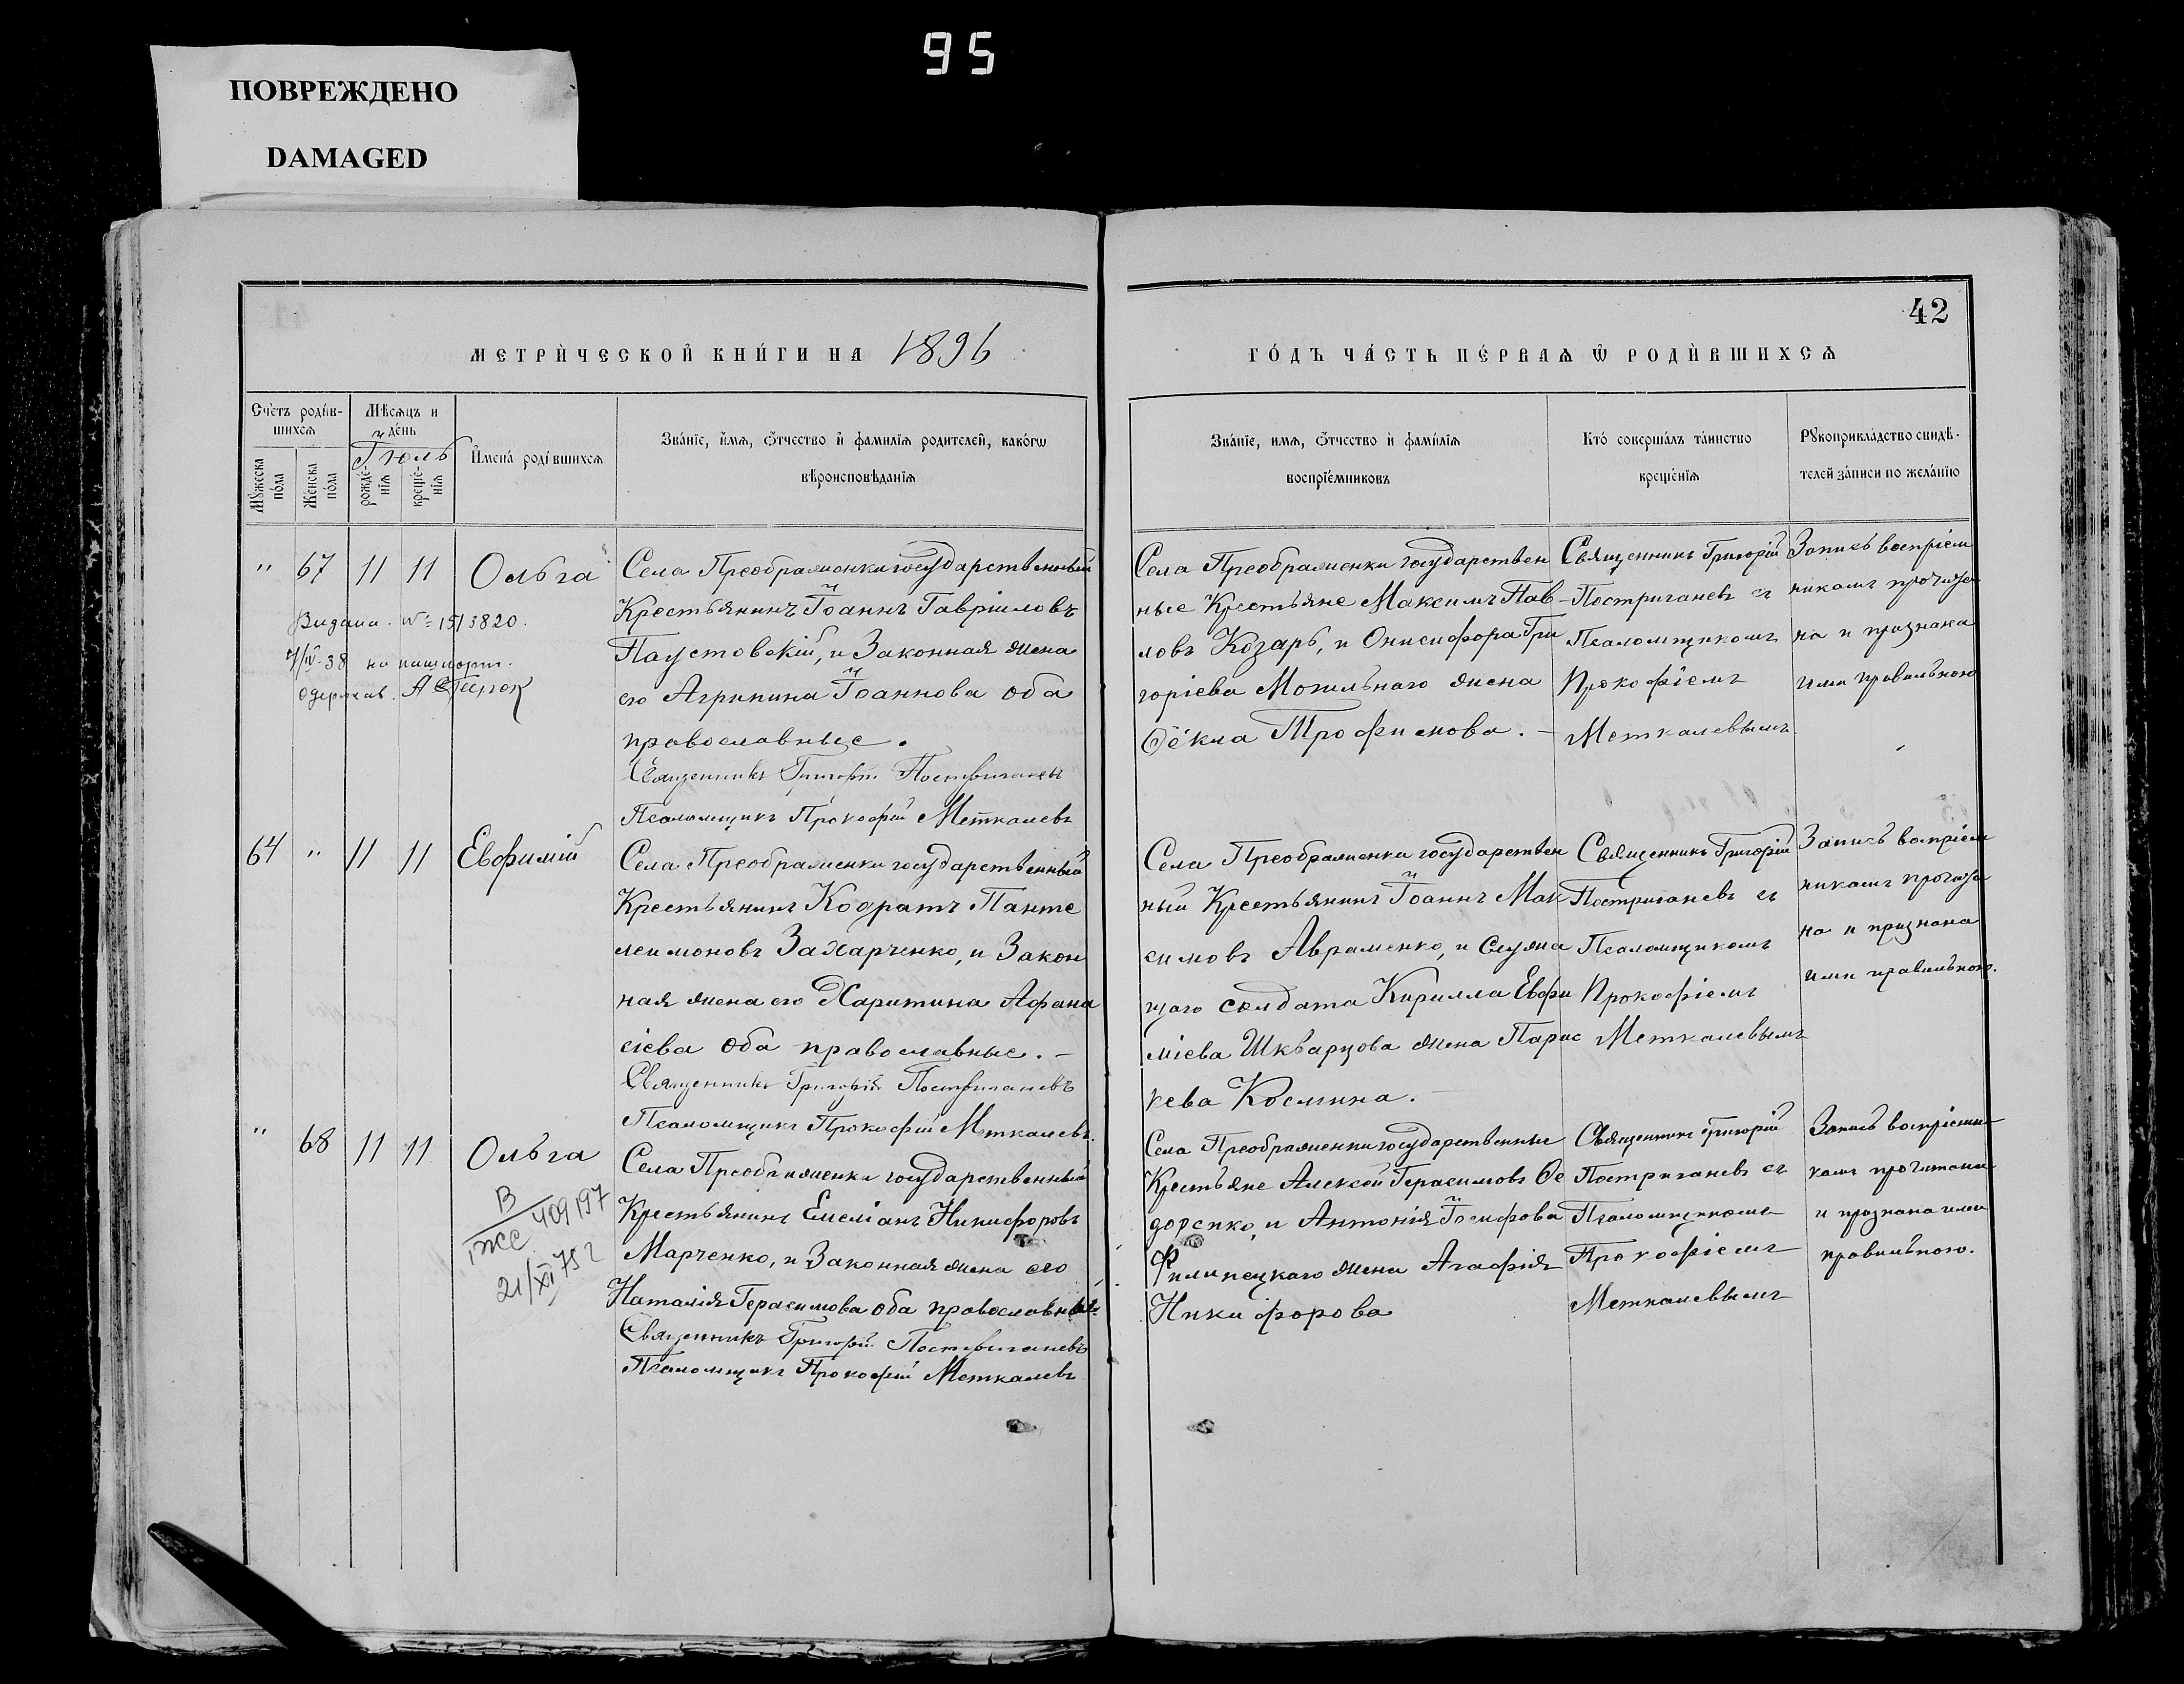 95
ПОВРЕЖДЕНО
DAMAGED
42
МЕТРИ́ЧЕСКОЙ КНИ́ГИ НА 1896
ГО́ДЪ ЧА́СТЬ ПЕ́РВАѦ Ѿ РОДИ́ВШИХСѦ
Счетъ роди́в-
шихсѧ
Мѣсѧцъ и
де́нь
Іюль
Мꙋжеска
по́ла
Же́нска
по́ла
рожде́-
нїѧ
креще́-
нїѧ
Имена́ роди́вшихсѧ
Зва́нїе, и́мѧ, ѻ́тчество и фами́лїѧ родителей, како́гѡ
вѣроисповѣ́данїѧ
Зва́нїе, имѧ, ѻ́тчество и фами́лїѧ
воспрїе́мниковъ
Кто́ соверша́лъ та́инство
креще́нїѧ
Рꙋкоприкла́дство свидѣ́-
телей за́писи по жела́нїю
" 67 11 11 Ольга
Села Преображенки государственный
Крестьянинъ Іоаннъ Гавріиловъ
Паустовскій, и Законная жена
его Агрипина Іоаннова оба
православные.
Священникъ Григорій Постриганевъ
Псаломщикъ Прокофій Меткалевъ
Видали. № 15/3820.
4/IV-38 на пашпорт.
одержав.
Села Преображенки государствен
ные Крестьяне Максимъ Пав-
ловъ Козарь, и Онисифора Гри
горіева Могильнаго жена
Ѳёкла Трофимова. -
Священникъ Григорій
Постриганевъ съ
Псаломщикомъ
Прокофіемъ
Меткалевымъ.
Запись воспріем
никамъ прочита
на и признана
ими правильною
64 " 11 11 Евфимій
Села Преображенки государственный
Крестьянинъ Кодратъ Панте
леимоновъ Захарченко, и Закон
ная жена его Харитина Афана
сіева оба православные. -
Священникъ Григорій Постриганевъ
Псаломщикъ Прокофій Меткалевъ.
Села Преображенки государствен
ный Крестьянинъ Іоаннъ Мак
симовъ Авраменко, и служа
щаго солдата Кирилла Евфи
міева Шкварцова жена Парас
кева Космина. -
Священникъ Григорій
Постриганевъ съ
Псаломщикомъ
Прокофіемъ
Меткалевымъ
Запись воспріем
никамъ прочита
на и признана
ими правильною.
" 68 11 11 Ольга
Села Преображенки государственный
Крестьянинъ Емеліанъ Никифоровъ
Марченко, и Законная жена его
Наталія Герасимова оба православные.
Священникъ Григорій Постриганевъ
Псаломщикъ Прокофій Меткалевъ
В
409197
21/XI 75 г
Села Преображенки государственные
Крестьяне Алексей Герасимовъ Ѳе
доренко, и Антонія Іосифова
Филипецкаго жена Агафія
Никифорова
Священникъ Григорій
Постриганевъ съ
Псаломщикомъ
Прокофіемъ
Меткалевымъ
Запись воспріемни
камъ прочитана
и признана ими
правильною.